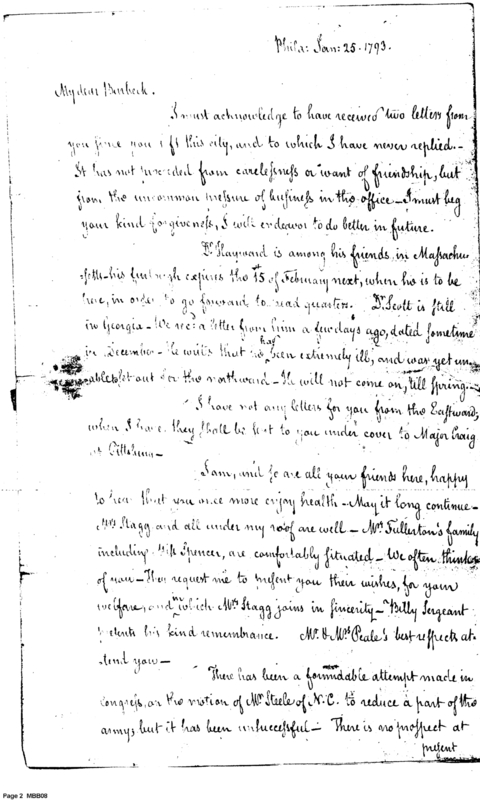 Phila: Jan: 25. 1793.
My dear Burbeck.
I must acknowledge to have received two letters from
you since you left this city, and to which I have never replied.-
It has not proceeded from carelessness or want of friendship, but
from the uncommon pressure of business in the office - I must beg
your kind forgiveness, I will endeavor to do better in future.
Dr. Hayward is among his friends in Massachu
setts - his furlough expires the 15 of February next, when he is to be
here, in order to go forward to head quarters. Dr. Scott is still
in Georgia - We recd: a letter from him a few days ago, dated sometime
in December - He writes that he has been extremely ill, and was yet un
able to set out for the northward - He will not come on, till Spring.-
I have not any letters for you from the Eastward;
when I have, they shall be sent to you under cover to Major Craig
at Pittsburg -
I am, and so are all your friends here, happy
to hear that you once more enjoy health - May it long continue -
Mrs. Stagg and all under my roof are well - Mrs. Fullerton's family
including Miss Spencer, are comfortably situated - We often think
of you - They request me to present you their wishes, for your
welfare, and in which Mrs. Stagg joins in sincerity - Billy Sergeant
presents his kind remembrance. Mr. & Mrs. Peale's best respects at-
tend you -
There has been a formidable attempt made in
Congress, on the motion of Mr. Steele of N. C. to reduce a part of the
army, but it has been unsuccessful - There is no prospect at
present
Page 2 MBB08